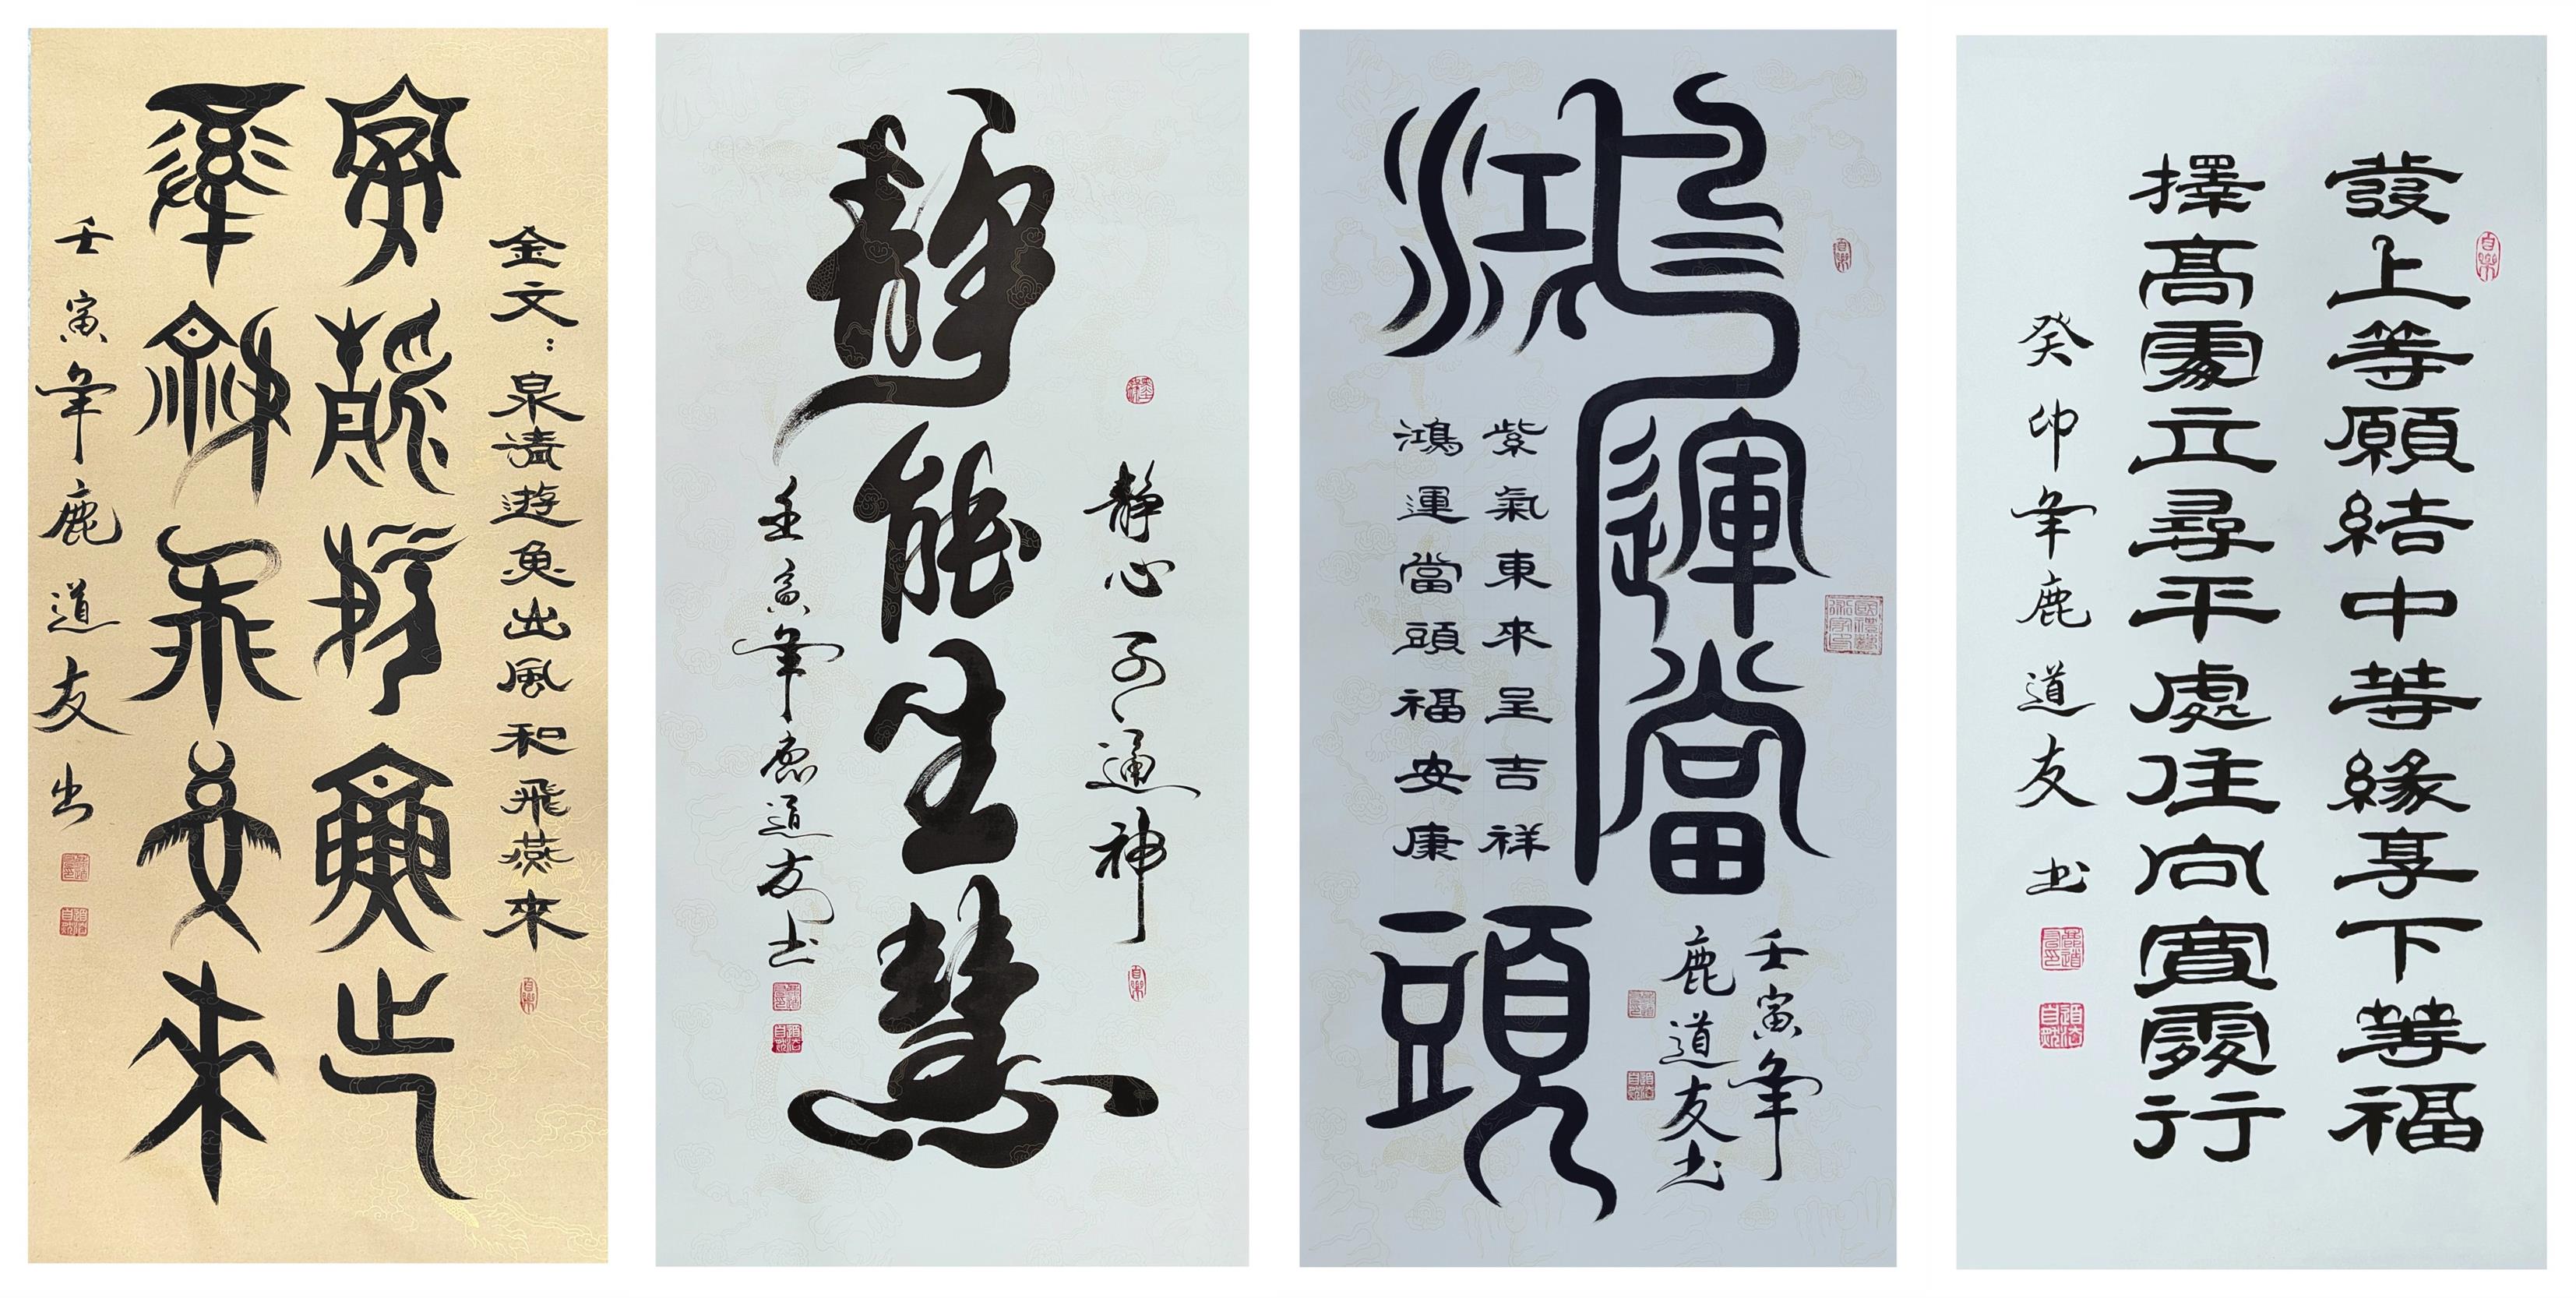 金文：泉清遊魚出風和飛燕來
泉清遊魚出
風和飛燕來
壬寅年鹿道友书
靜心可通神
靜能生慧
壬寅年鹿道友书
鴻運當頭
紫氣東來呈吉祥
鴻運當頭福安康
壬寅年
鹿道友书
發上等願結中等緣享下等福
擇高處立尋平處住向寬處行
癸卯年鹿道友书